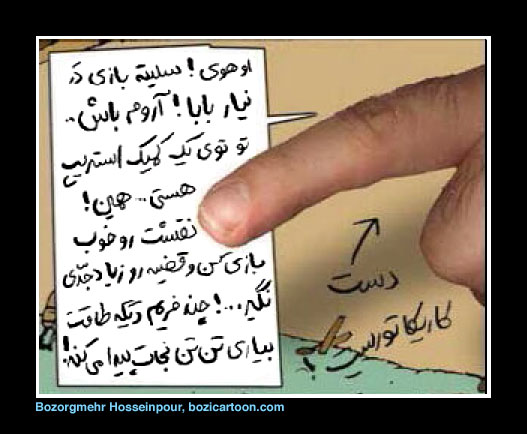 اوهوی! سلیته بازی در
نیار بابا! آروم باش..
تو توی یک کمیک استریپ
هستی... همین!
نقشت رو خوب
بازی کن و قضیه رو زیاد جدّی
نگیر...! چند فریم دیگه طاقت
بیاری تن تن نجات پیدا می‌کنه!
دست
کاریکاتوریست!
Bozorgmehr Hosseinpour, bozicartoon.com